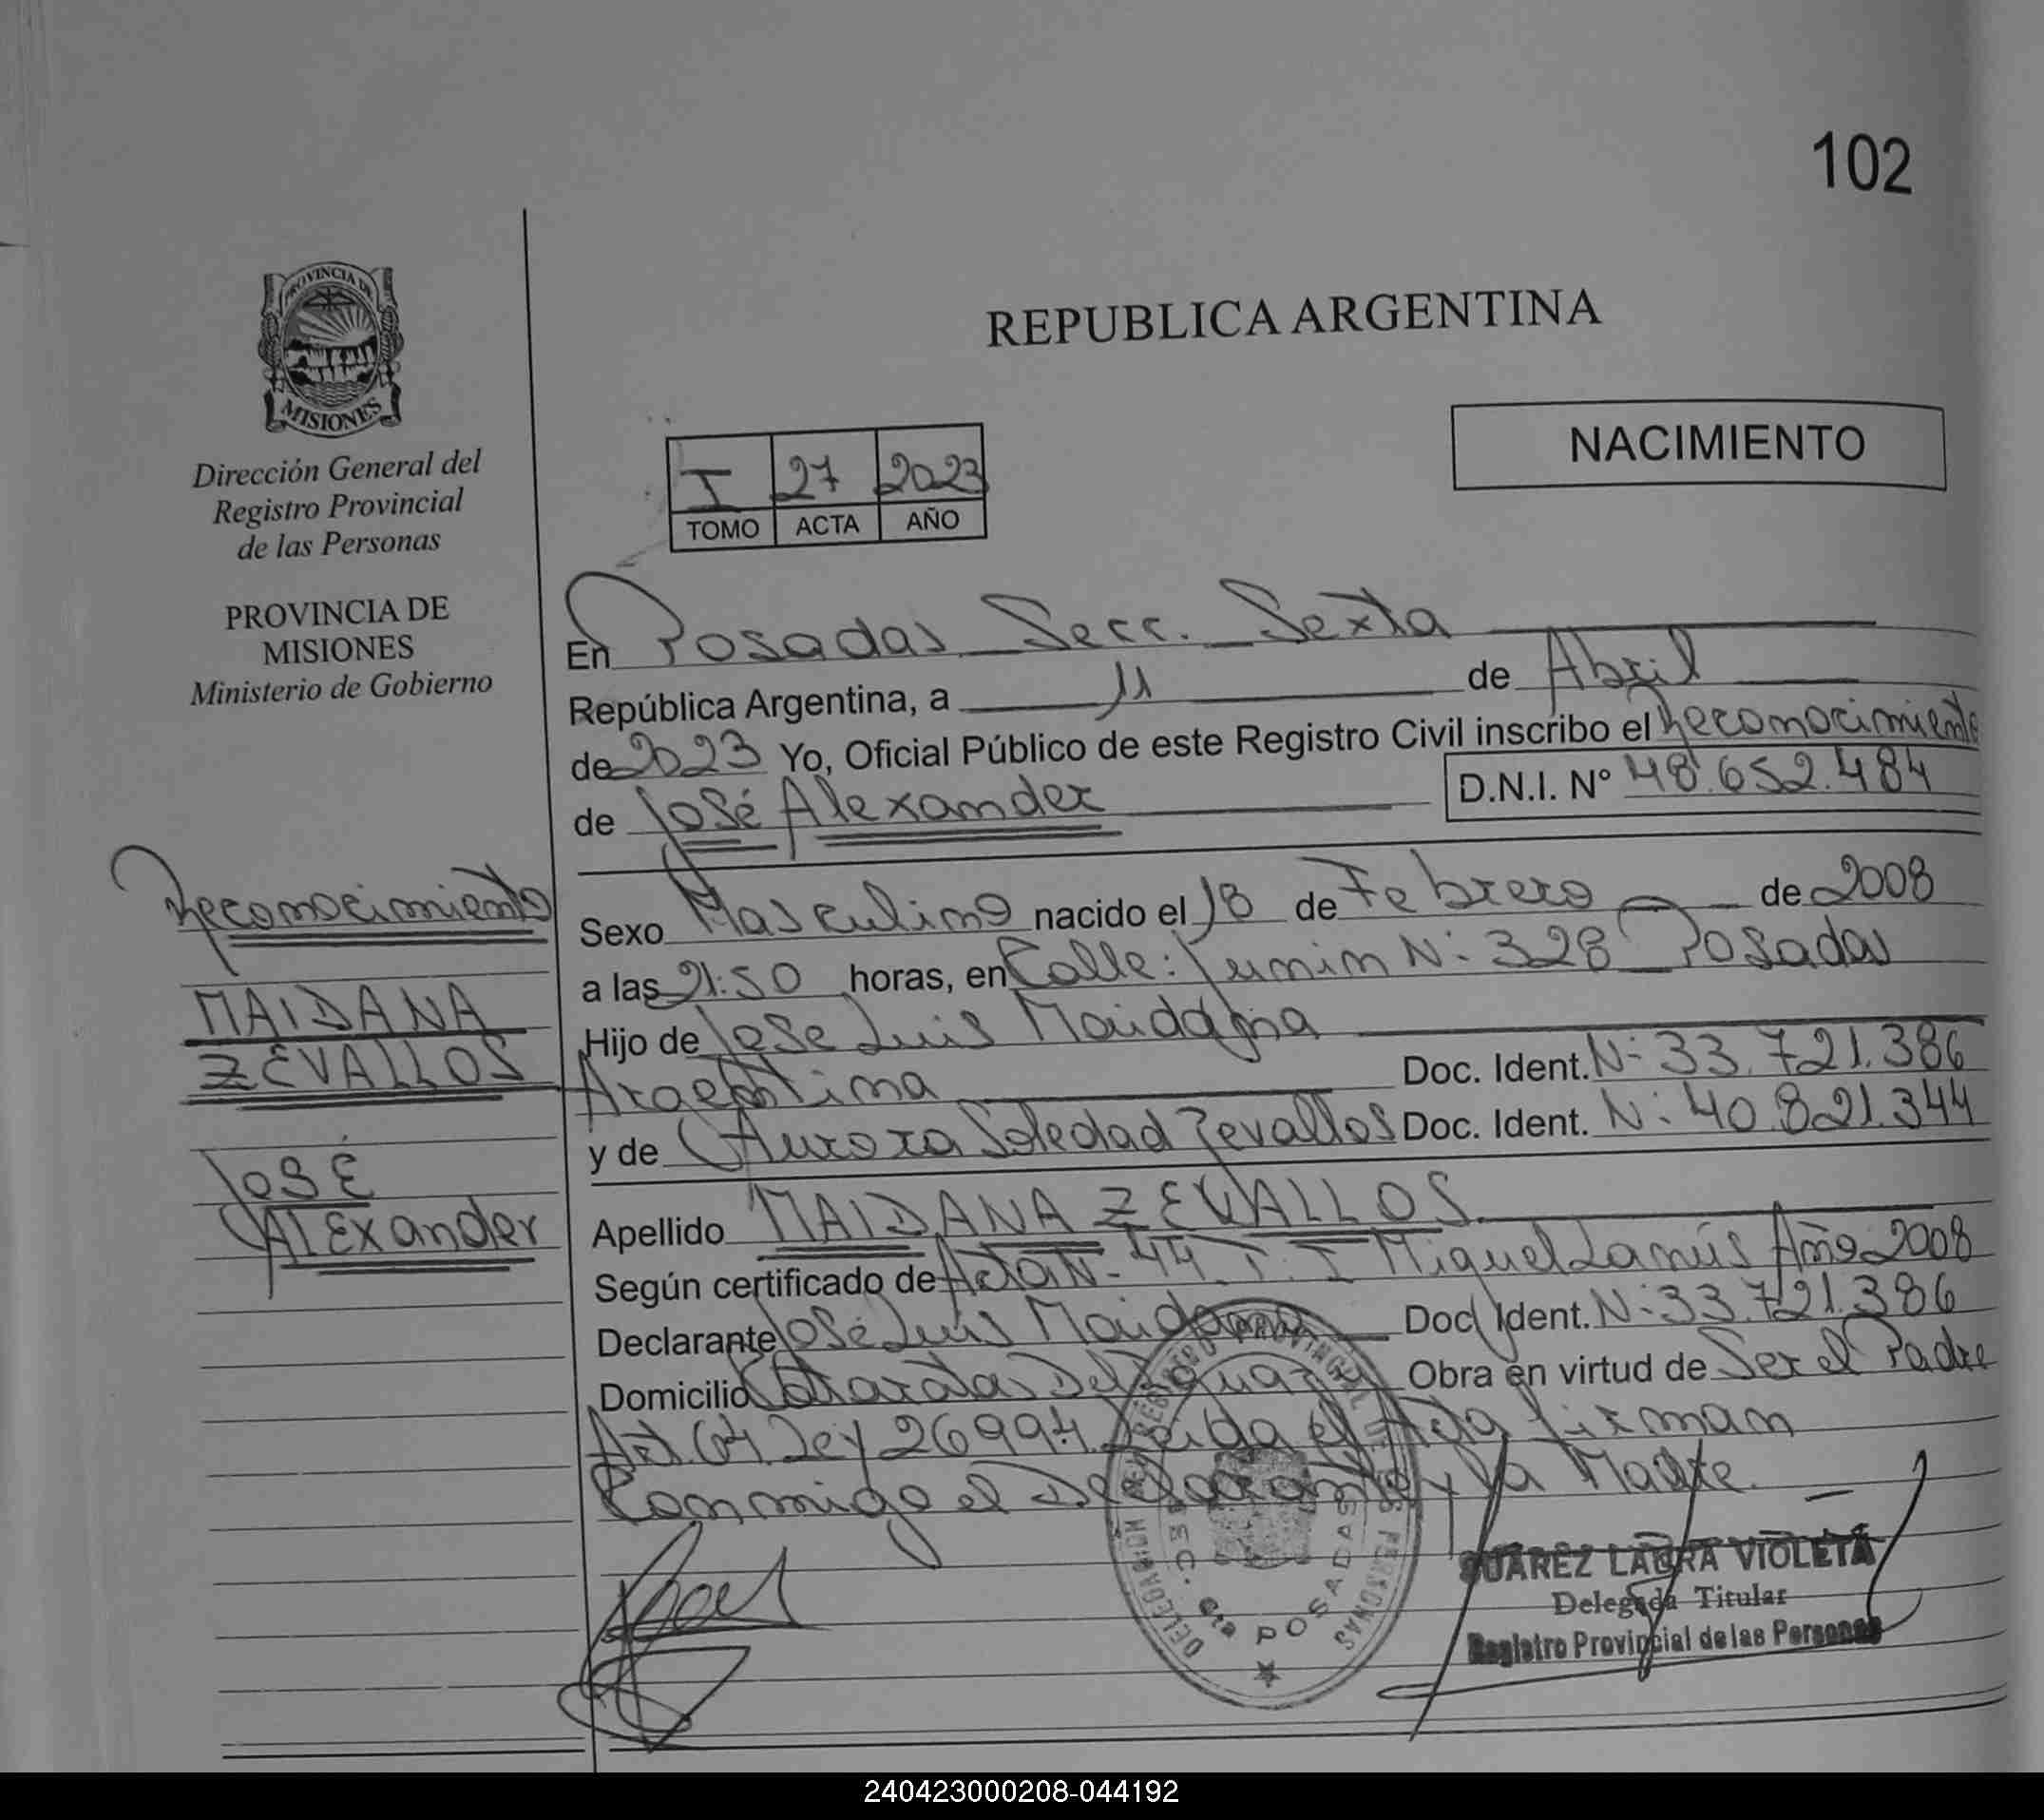 102
PROVINCIA DE
MISIONES
Dirección General del
Registro Provincial
de las Personas
PROVINCIA DE
MISIONES
Ministerio de Gobierno
Reconocimiento
MAIDANA
ZEVALLOS
José
Alexander
REPUBLICA ARGENTINA
NACIMIENTO
I 27 2023
TOMO ACTA AÑO
En Posadas Secc. Sexta
República Argentina, a 11 de Abril
de 2023 Yo, Oficial Público de este Registro Civil inscribo el Reconocimiento
de José Alexander D.N.I. Nº 48.652.484
Sexo Masculino nacido el 18 de Febrero de 2008
a las 21:50 horas, en Calle: Junin N: 328 Posadas
Hijo de Jose Luis Maidana
Argentina Doc. Ident. N: 33.721.386
y de Aurora Soledad Zevallos Doc. Ident. N: 40.821.344
Apellido MAIDANA ZEVALLOS
Según certificado de Acta N- 44 T. I Miguel Lanús Año 2008
Declarante José Luis Maidana Doc. Ident. N: 33.721.386
Domicilio Cataratas Del Iguazú Obra en virtud de Ser el Padre
Art. 64 Ley 26994. Leida el Acta firman
Conmigo el Declarante y la Madre.
SEC. 6ta POSADAS
SUAREZ LAURA VIOLETA
Delegada Titular
Registro Provincial de las Personas
240423000208-044192